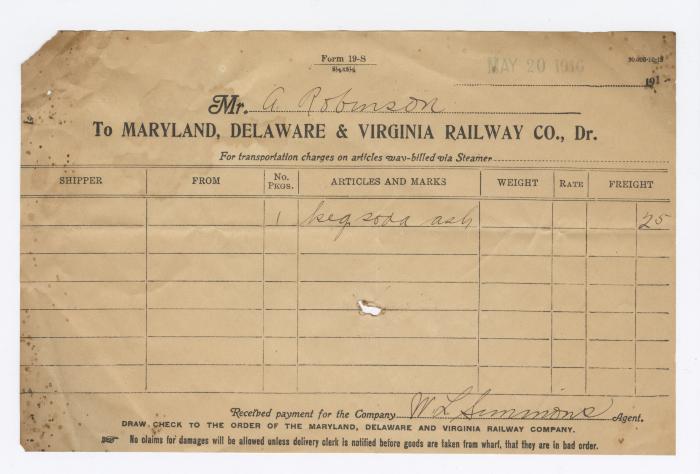 Form 19-S
8½x5½
MAY 20 1916
191
Mr. A Robinson
To MARYLAND, DELAWARE & VIRGINIA RAILWAY CO., Dr.
For transportation charges on articles way-billed via Steamer
SHIPPER FROM No. PKGS. ARTICLES AND MARKS WEIGHT RATE FREIGHT
1 keg soda ash 25
Received payment for the Company W L Simmons Agent.
DRAW CHECK TO THE ORDER OF THE MARYLAND, DELAWARE AND VIRGINIA RAILWAY COMPANY.
No claims for damages will be allowed unless delivery clerk is notified before goods are taken from wharf, that they are in bad order.